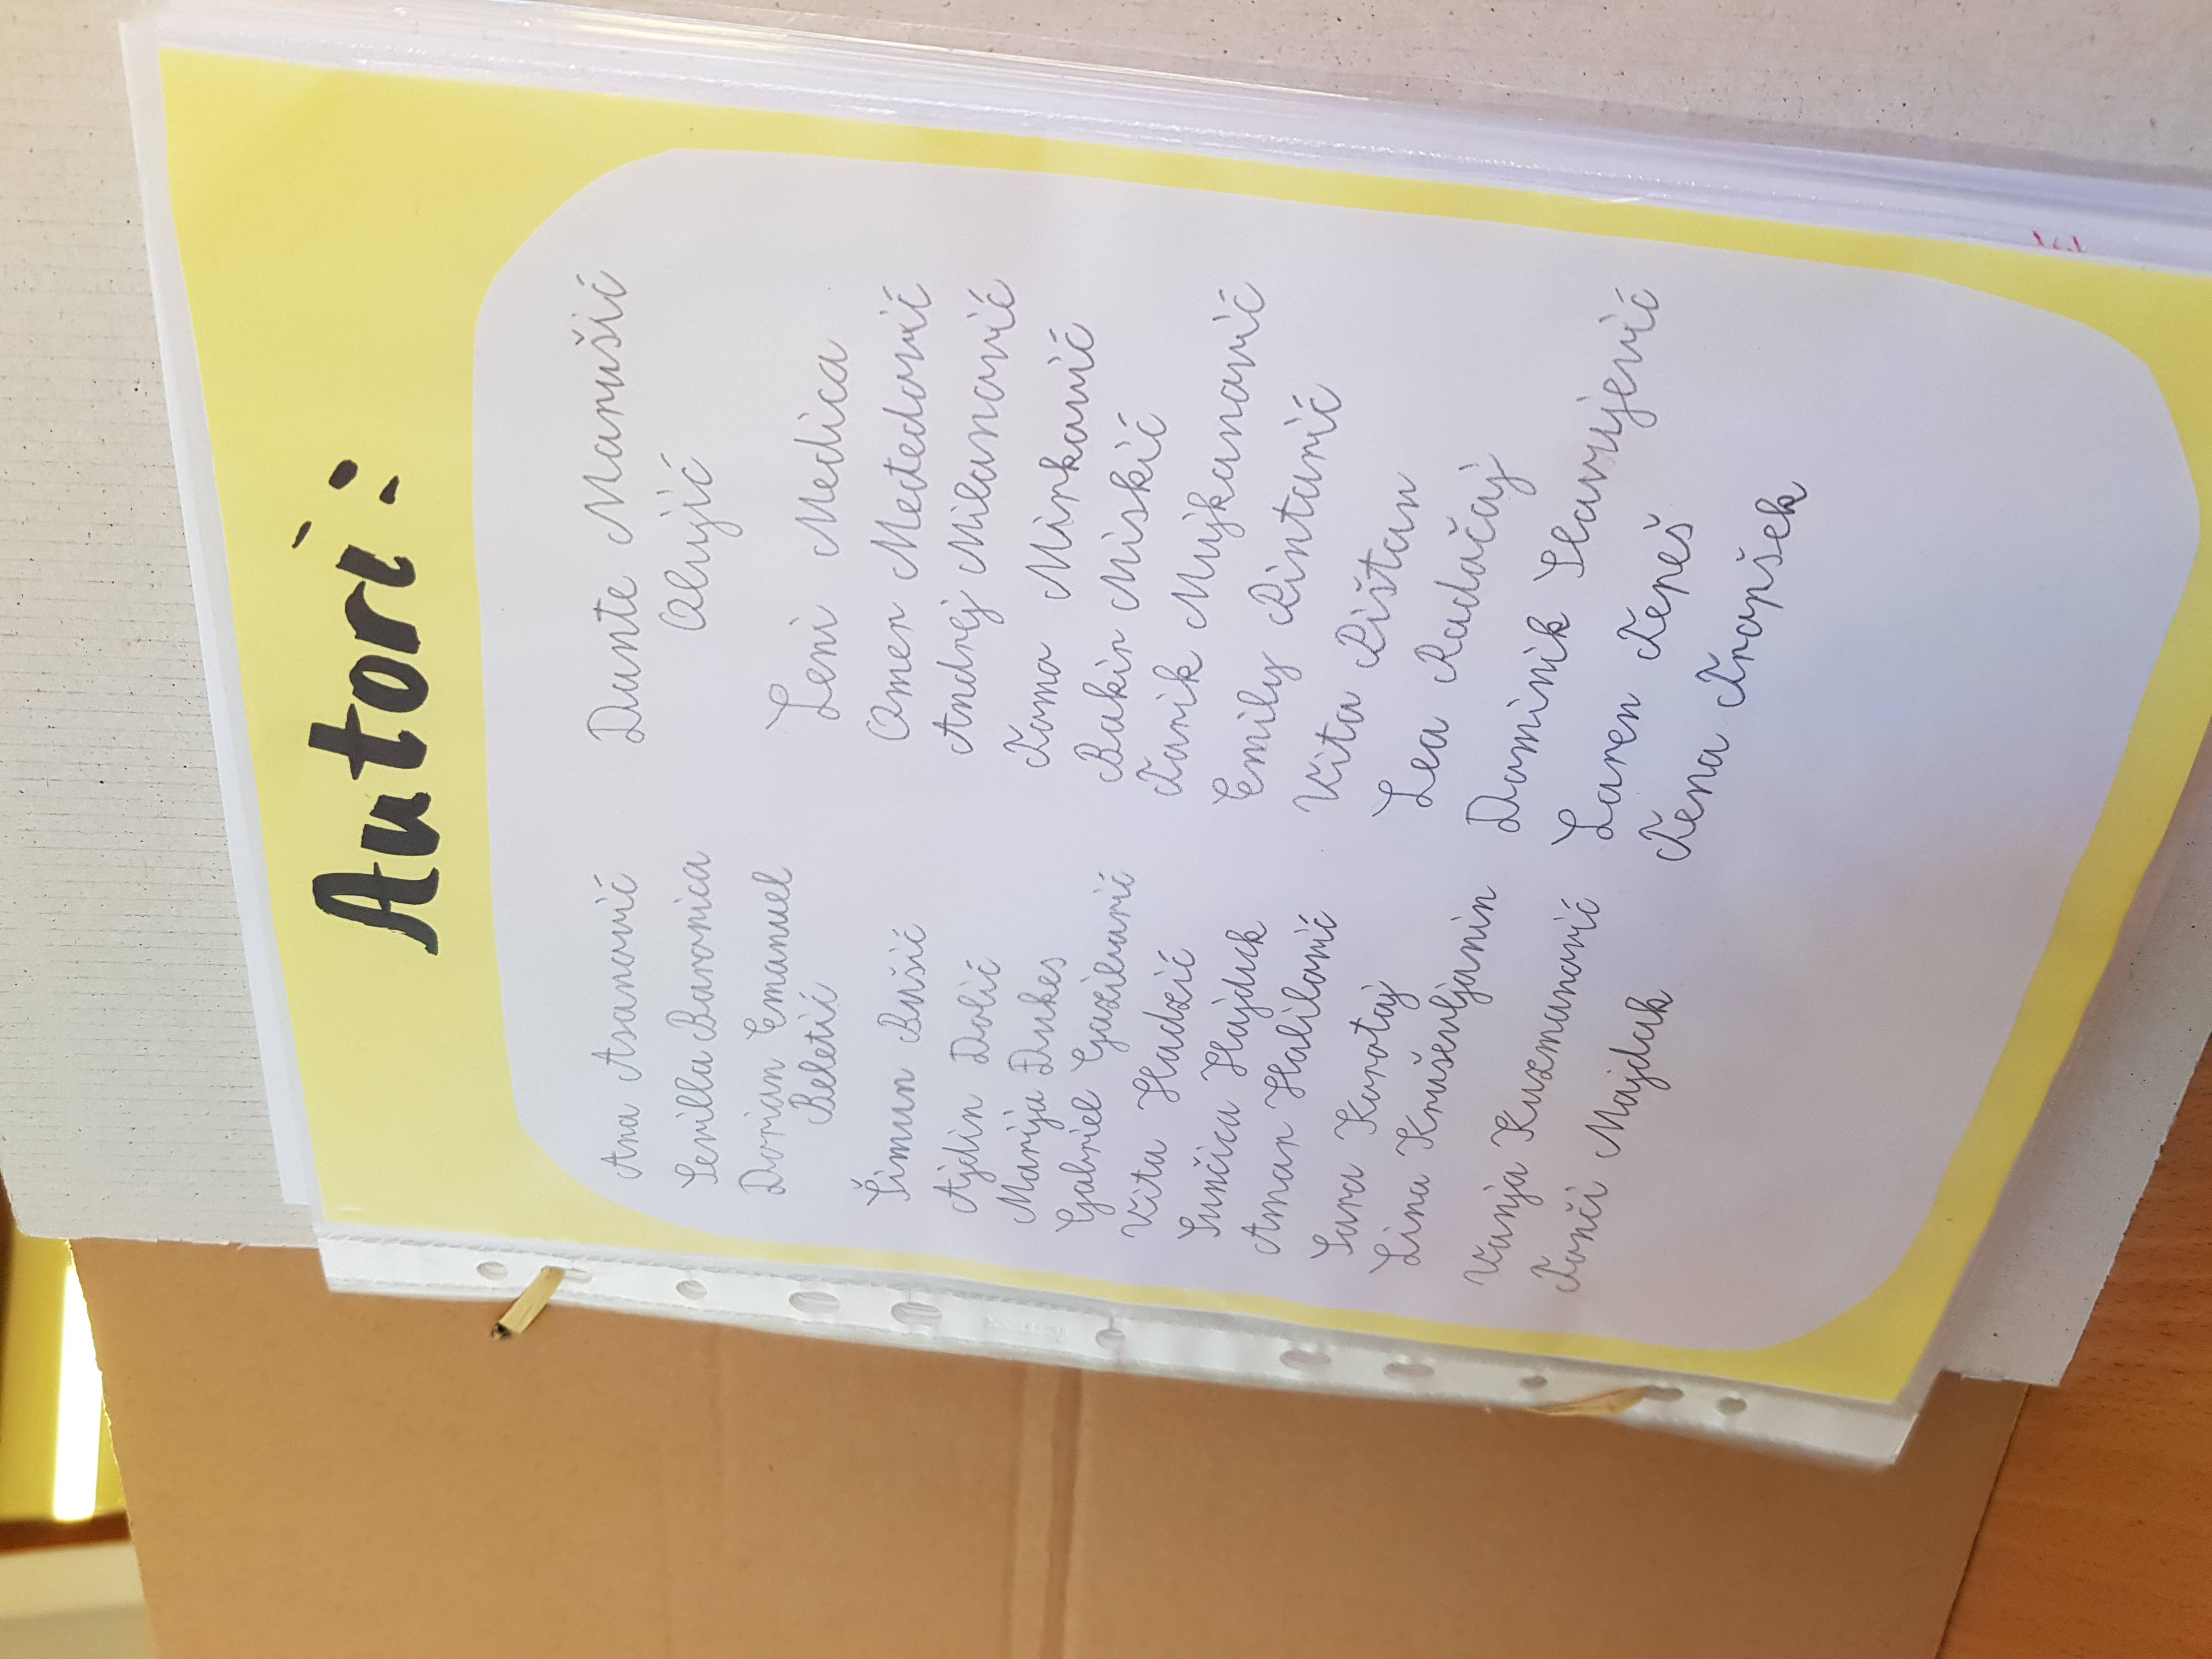 Autori:
Ana Asanović
Sevilla Baronica
Dorian Emanuel
Beletić
Šimun Bušić
Ajdin Dolić
Marija Dukes
Gabriel Gazilvarić
Vita Hadzić
Sunčica Hajduk
Aman Halilović
Sara Korotaj
Lina Kruševljanin
Vanja Kuzmanović
Tonči Majdak
Dante Marušić
Alujić
Leni Medica
Omer Mededović
Andrej Milanović
Toma Minković
Bakir Miskić
Tarik Mujkanović
Emily Pintarić
Vita Pištan
Lea Radačaj
Dominik Slavujević
Loren Tepeš
Tena Tropšek